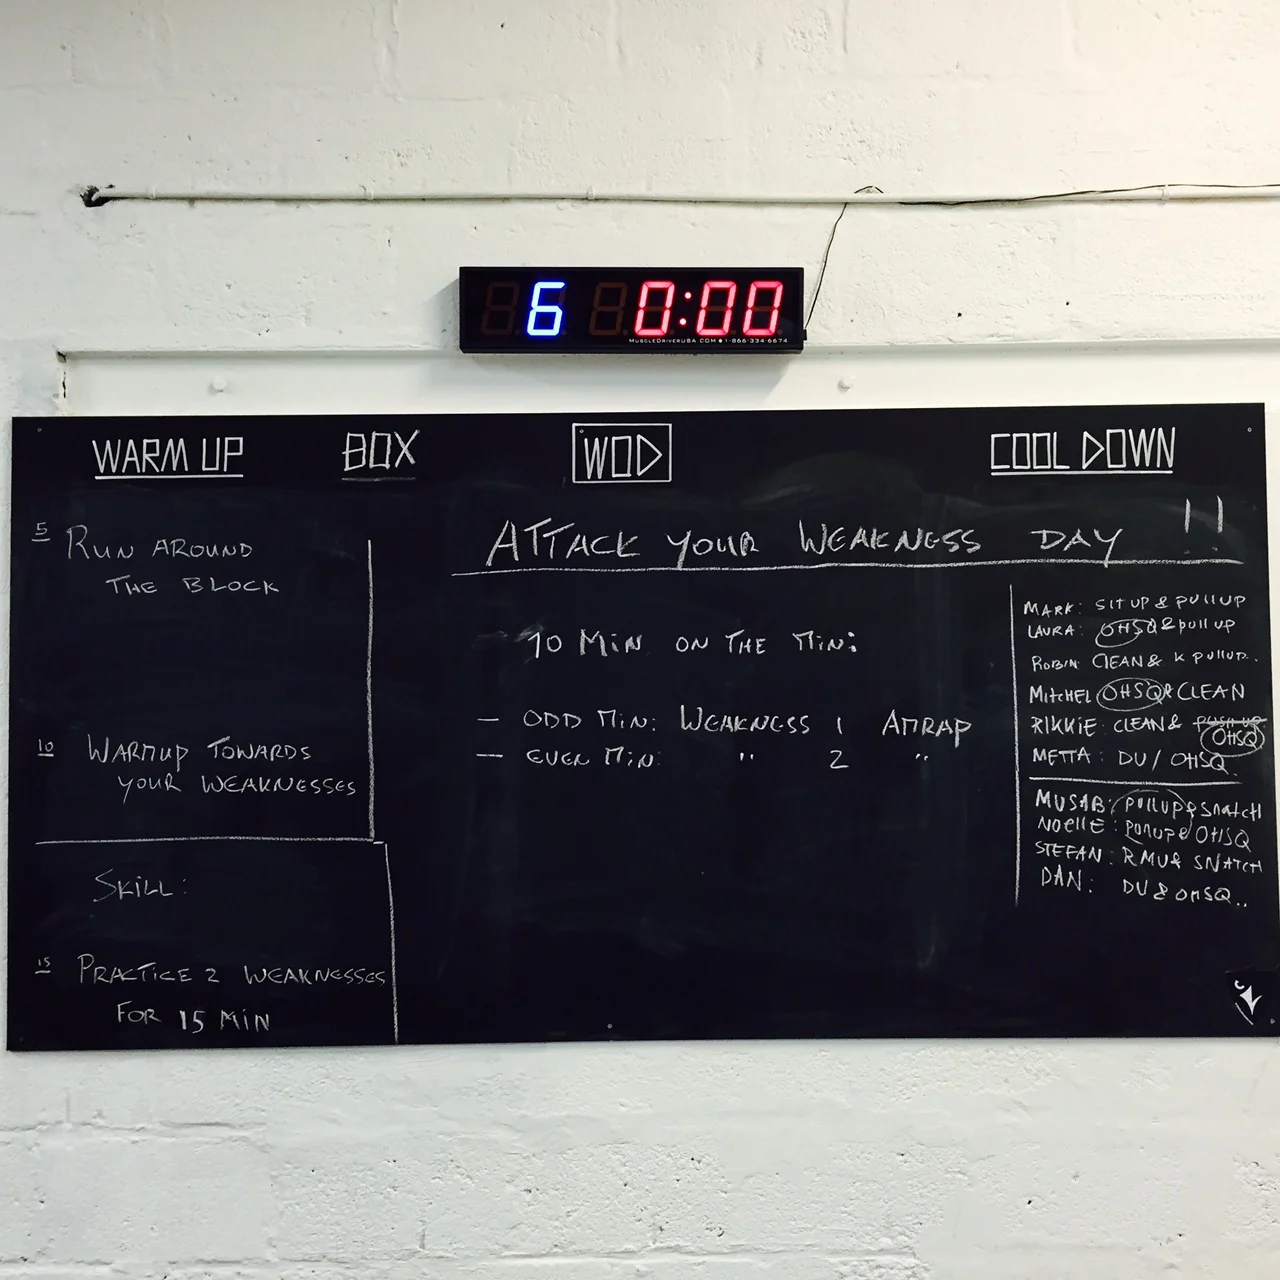 6 0:00
MUSCLEDRIVERUSA.COM 1-866-334-6674
WARM UP
BOX
WOD
COOL DOWN
5 RUN AROUND
THE BLOCK
10 WARMUP TOWARDS
YOUR WEAKNESSES
SKILL:
15 PRACTICE 2 WEAKNESSES
FOR 15 MIN
ATTACK YOUR WEAKNESS DAY !!
10 MIN ON THE MIN:
— ODD MIN: WEAKNESS 1 AMRAP
— EVEN MIN: " 2 "
MARK: SIT UP & PULLUP
LAURA: OHSQ & PULL UP
ROBIN: CLEAN & K PULLUP..
MITCHEL OHSQ & CLEAN
RIKKIE: CLEAN & PUSH UP
OHSQ
METTA: DU / OHSQ.
MUSAB: PULLUP & SNATCH
NOELLE: PULLUP & OHSQ
STEFAN: RMU & SNATCH
DAN: DU & OHSQ..